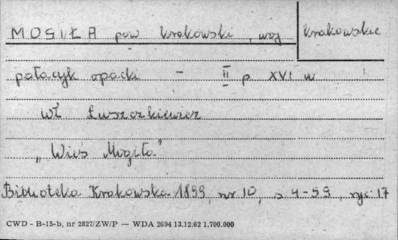 MOGIŁA pow krakowski, woj krakowskie
pałacyk opacki – II p. XVI w
wł Łuszczkiewicz
„Wieś Mogiła"
Biblioteka Krakowska 1899, nr 10, s 4-59, ryc. 17
CWD - B-15-b, nr 2827/ZW/P — WDA 2694 13.12.62 1.700.000